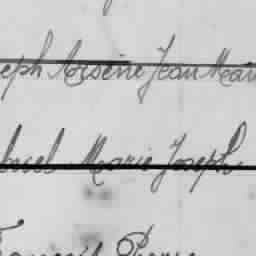 eph Arsène Jean Mari
Marie Joseph
François Pierre